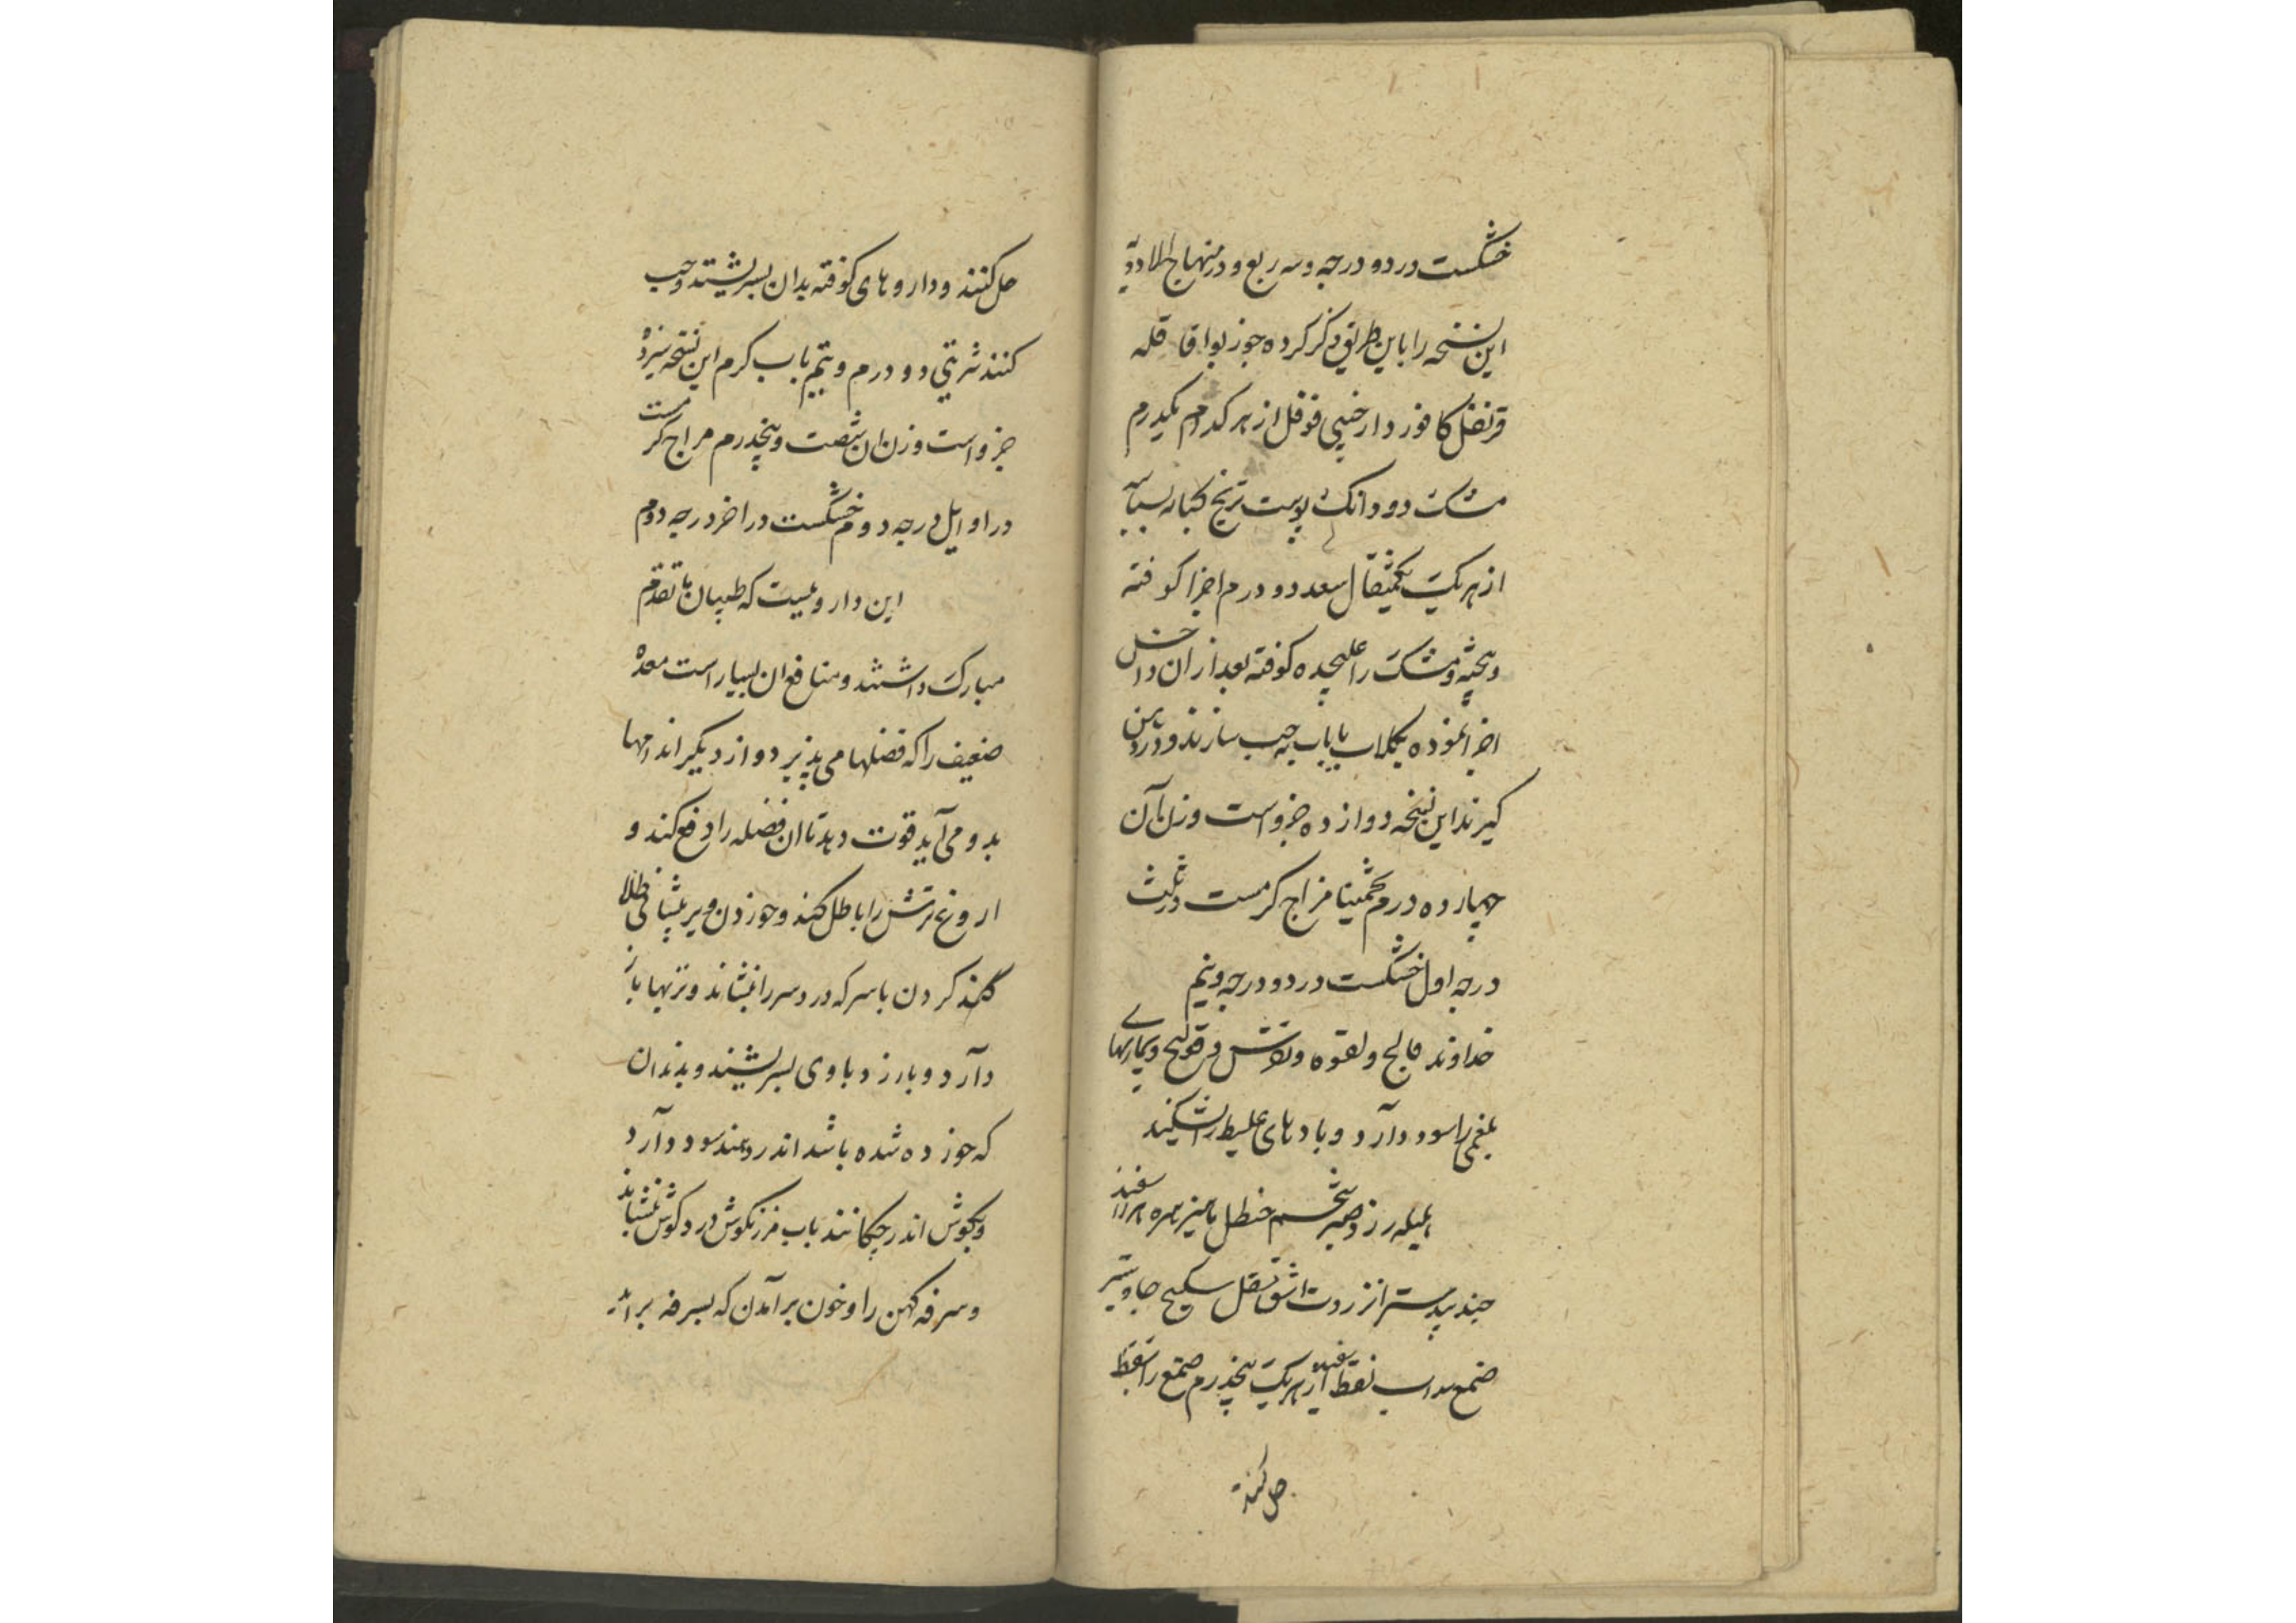 خشکست در دو درجه و سه ربع و در منهاج الادویه
این نسخه را باین طریق ذکر کرده جوز بوا قاقله
قرنفل کافور دارچینی فوفل از هر کدام یکدرم
مشک دو دانک پوست ترنج کبابه بسباسه
از هر یک یکمثقال سعد دو درم اجزا کوفته
و بیخته و مشک را علیحده کوفته بعد از ان داخل
اجزا نموده بکلاب یا باب به حب سازند و در دهن
کیرند این نسخه دوازده جزو است وزن آن
چهارده درم تخمینا مزاج کرمست در ثلث
درجه اول خشکست در دو درجه و نیم
خداوند فالج و لقوه و نقرس و قولنج و بیماریهای
بلغمی را سود دارد و بادهای غلیظ را بشکند
هلیله زرد صبر شحم حنظل
جندبیدستر انزروت اشق مقل سکبینج جاوشیر
صمغ سداب نفط سفید از هر یک پنجدرم صمغ را بنفط
حل کنند
حل کنند و داروهای کوفته بدان بسریشند و حب
کنند شربتی دو درم و نیم باب کرم این نسخه سیزده
جزو است وزن ان شصت و پنجدرم مزاج کرمست
در اوایل درجه دوم خشکست در اخر درجه دوم
این داروئیست که طبیبان ما تقدم
مبارک داشتند و منافع ان بسیار است معده
ضعیف را که فضلها می پذیرد و از دیکر اندامها
بدو می آید قوت دهد تا ان فضله را دفع کند و
اروغ ترش را باطل کند و خوردن و بر پیشانی طلا
کردن با سرکه درد سر را بنشاند و تبها باز
دارد و بارزد با وی بسریشند و بدندان
که خورده شده باشد اندر نهند سود دارد
و بکوش اندر چکانند باب مرزنکوش درد کوش بنشاند
و سرفه کهن را و خون بر آمدن که بسرفه بر اید